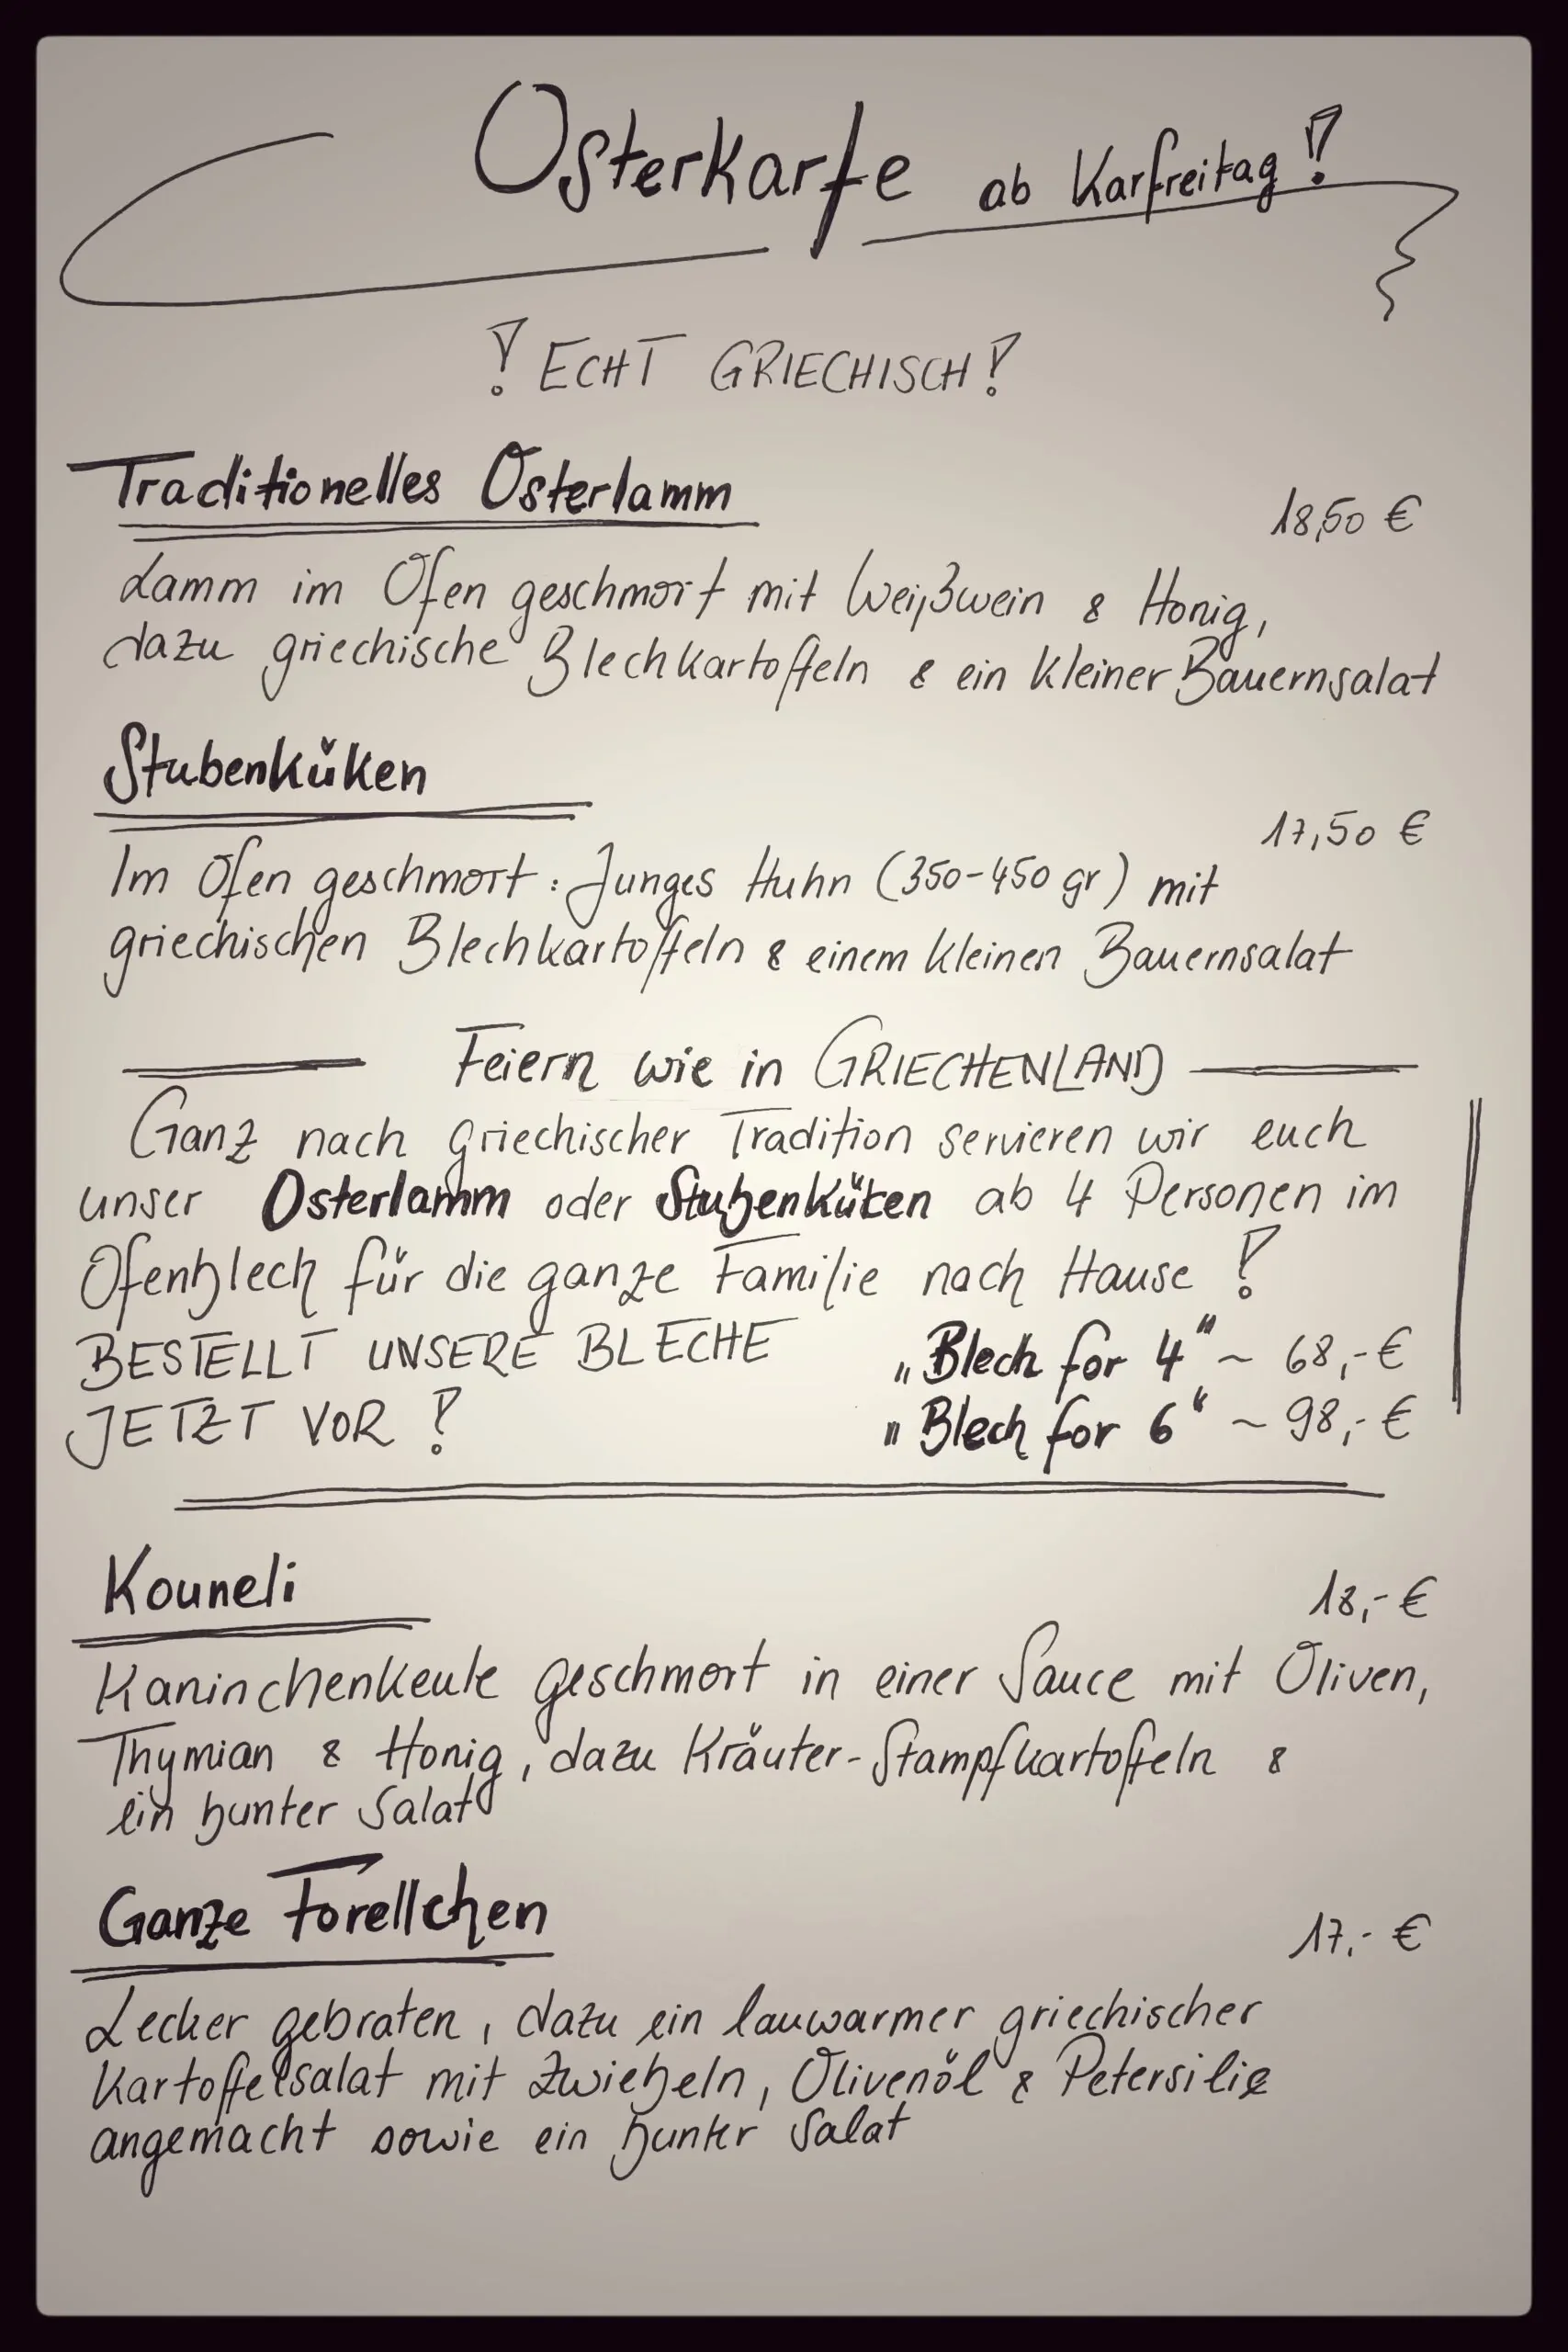 Osterkarte ab Karfreitag!
! ECHT GRIECHISCH!
Traditionelles Osterlamm
18,50 €
Lamm im Ofen geschmort mit Weißwein & Honig,
dazu griechische Blechkartoffeln & ein kleiner Bauernsalat
Stubenküken
17,50 €
Im Ofen geschmort: Junges Huhn (350-450 gr) mit
griechischen Blechkartoffeln & einem kleinen Bauernsalat
Feiern wie in GRIECHENLAND
Ganz nach griechischer Tradition servieren wir euch
unser Osterlamm oder Stubenküken ab 4 Personen im
Ofenblech für die ganze Familie nach Hause!
BESTELLT UNSERE BLECHE „Blech for 4" ~ 68,-€
JETZT VOR! "Blech for 6" ~ 98,-€
Kouneli
18,-€
Kaninchenkeule geschmort in einer Sauce mit Oliven,
Thymian & Honig, dazu Kräuter-Stampfkartoffeln &
ein bunter Salat
Ganze Forellchen
17,- €
Lecker gebraten, dazu ein lauwarmer griechischer
Kartoffelsalat mit Zwiebeln, Olivenöl & Petersilie
angemacht sowie ein bunter Salat